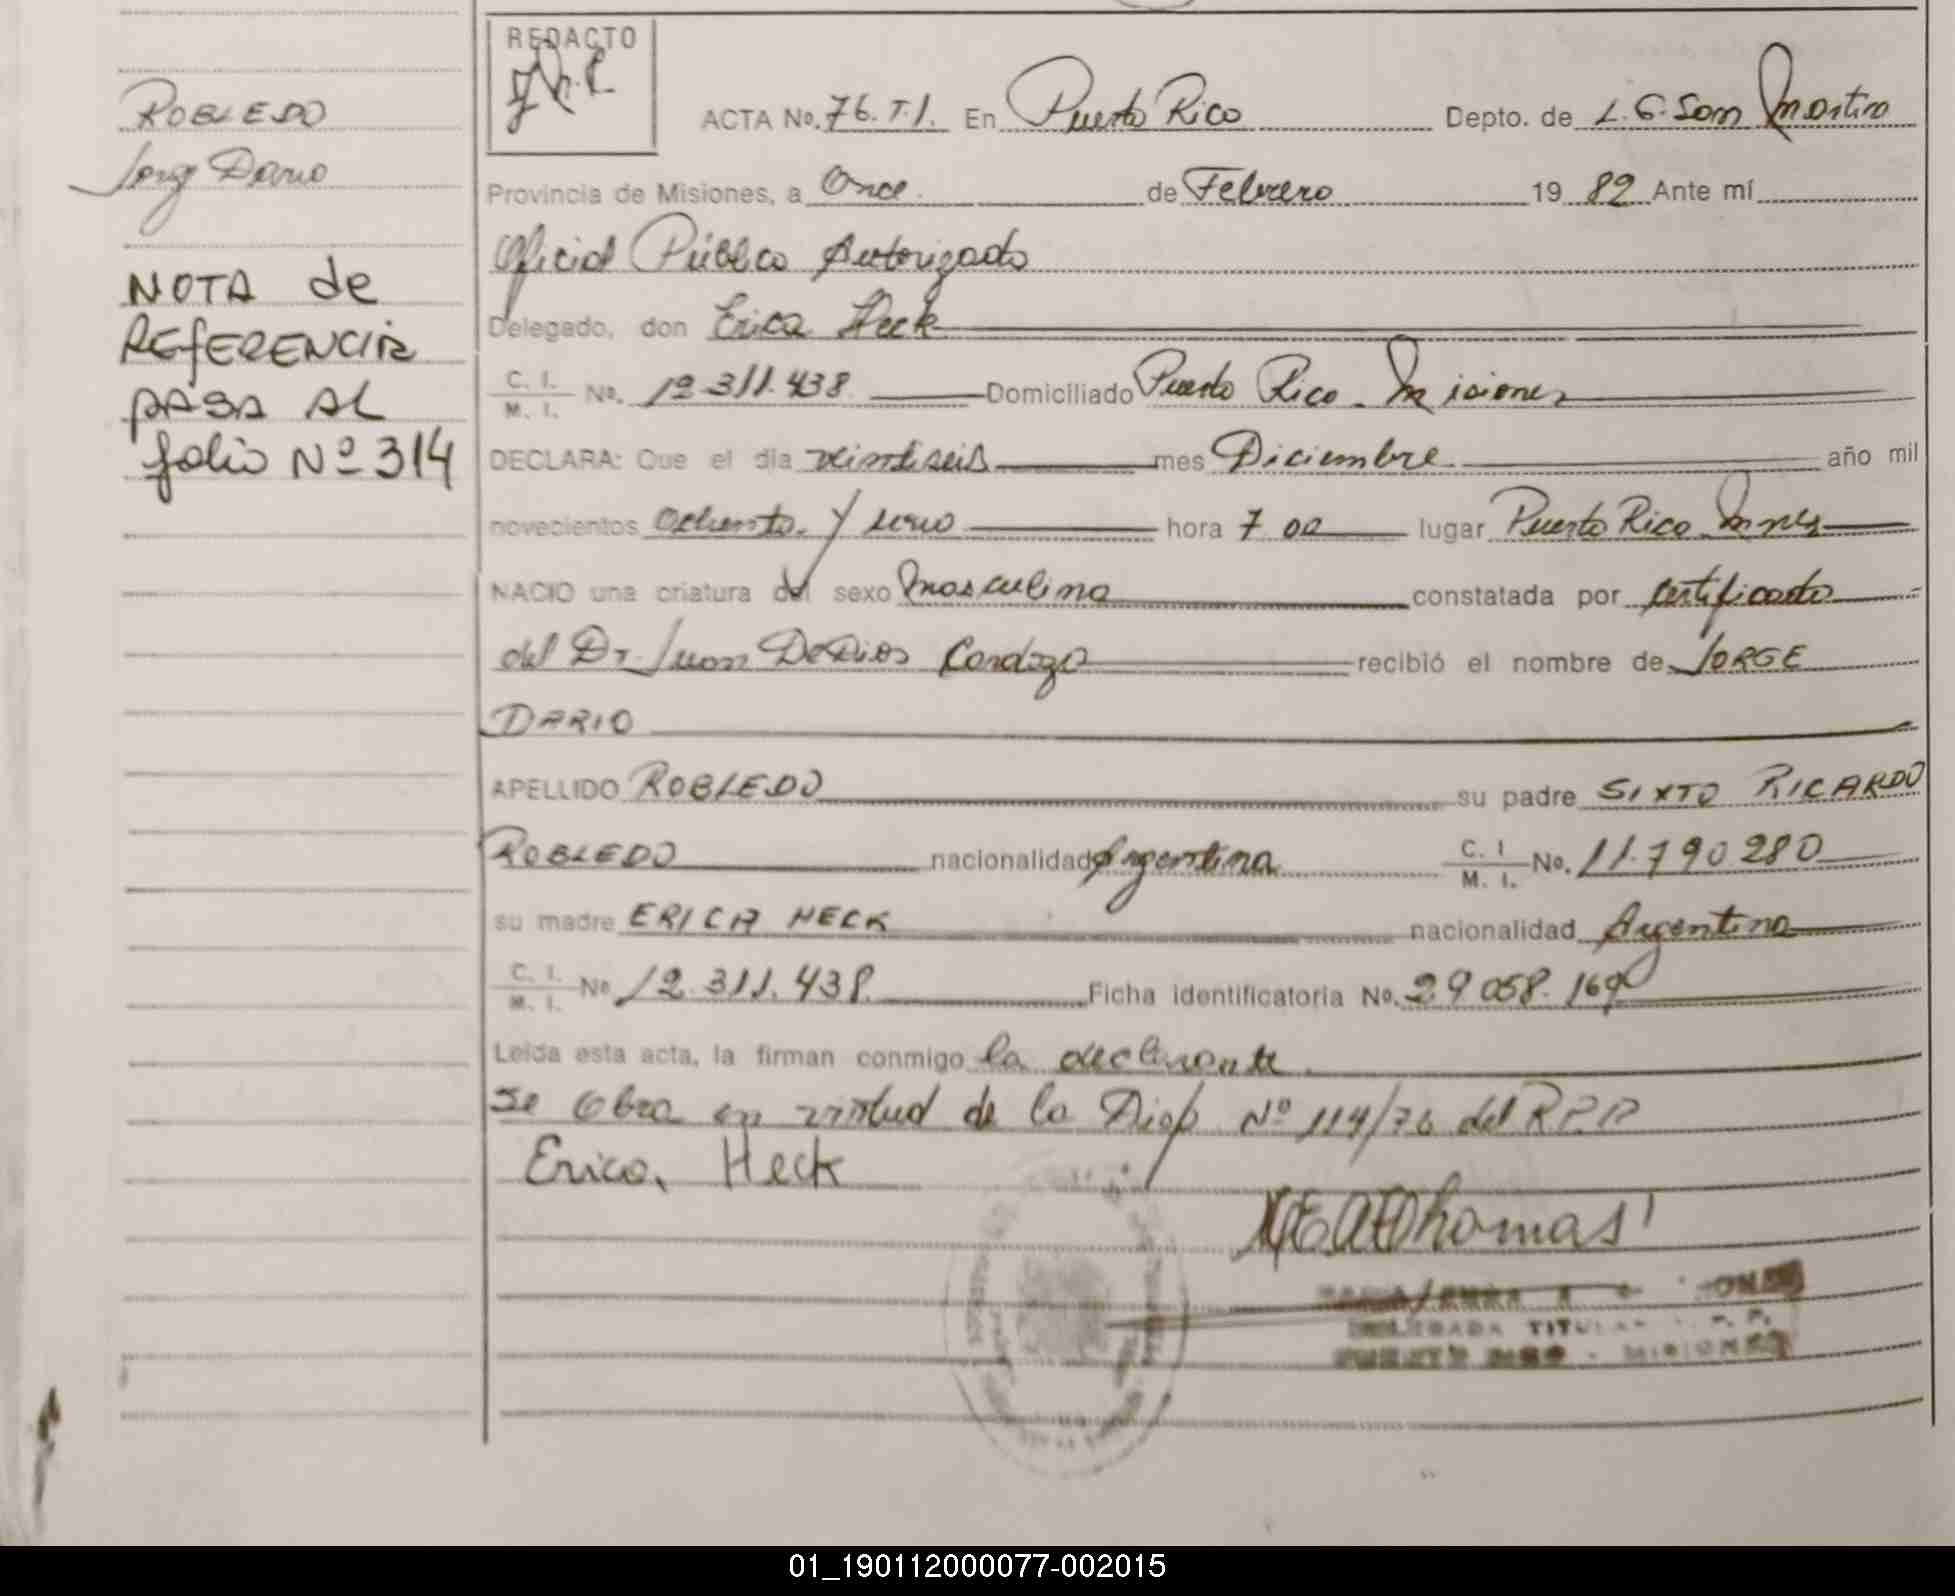 ROBLEDO
Jorge Dario
NOTA de
REFERENCIA
PASA AL
folio Nº 314
REDACTO
ACTA No. 76. T.I. En Puerto Rico Depto. de L. G. San Martin
Provincia de Misiones, a Once de Febrero 19 82 Ante mí
Oficial Público Autorizado
Delegado, don Erica Heck
C. I. / M. I. No. 12 311.438 Domiciliado Puerto Rico - Misiones
DECLARA: Que el día veintiseis mes Diciembre año mil
novecientos Ochenta y uno hora 7 00 lugar Puerto Rico Mnes
NACIO una criatura del sexo masculino constatada por certificado
del Dr. Juan De Dios Cardozo recibió el nombre de JORGE
DARIO
APELLIDO ROBLEDO su padre SIXTO RICARDO
ROBLEDO nacionalidad Argentina C. I. / M. I. No. 11.790 280
su madre ERICA HECK nacionalidad Argentina
C. I. / M. I. No 12.311.438 Ficha identificatoria No. 29 058.169
Leída esta acta, la firman conmigo la declarante
Se Obra en virtud de la Disp. Nº 114/76 del R.P.P
Erica Heck
Thomas
DELEGADA TITULAR
PUERTO RICO - MISIONES
01_190112000077-002015